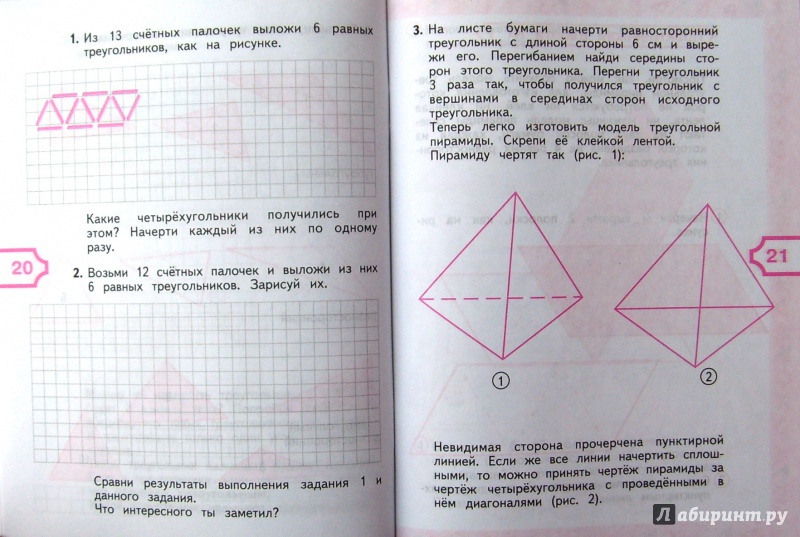 1. Из 13 счётных палочек выложи 6 равных
треугольников, как на рисунке.
Какие четырёхугольники получились при
этом? Начерти каждый из них по одному
разу.
20
2. Возьми 12 счётных палочек и выложи из них
6 равных треугольников. Зарисуй их.
Сравни результаты выполнения задания 1 и
данного задания.
Что интересного ты заметил?
3. На листе бумаги начерти равносторонний
треугольник с длиной стороны 6 см и выре-
жи его. Перегибанием найди середины сто-
рон этого треугольника. Перегни треугольник
3 раза так, чтобы получился треугольник с
вершинами в серединах сторон исходного
треугольника.
Теперь легко изготовить модель треугольной
пирамиды. Скрепи её клейкой лентой.
Пирамиду чертят так (рис. 1):
21
1
2
Невидимая сторона прочерчена пунктирной
линией. Если же все линии начертить сплош-
ными, то можно принять чертёж пирамиды за
чертёж четырёхугольника с проведёнными в
нём диагоналями (рис. 2).
Лабиринт.ру